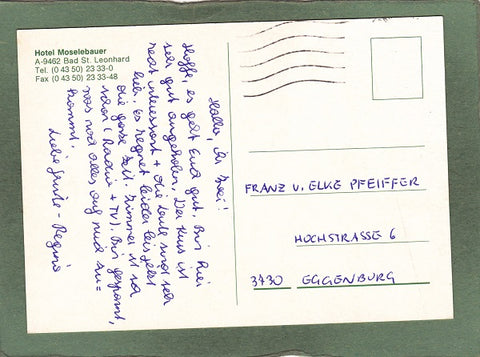 Hotel Moselebauer
A-9462 Bad St. Leonhard
Tel. (0 43 50) 23 33-0
Fax (0 43 50) 23 33-48
Hallo, Ihr Zwei!
Hoffe, es geht Euch gut. Bin hier
sehr gut angekommen. Der Kurs ist
recht interessant + die Leute sind sehr
lieb. Es regnet leider bis jetzt
die ganze Zeit. Zimmer ist
(Radio + TV). Bin gespannt,
was noch alles auf mich zu=
kommt.
Liebe Grüße - Regina
FRANZ U. ELKE PFEIFFER
HOCHSTRASSE 6
3730 EGGENBURG